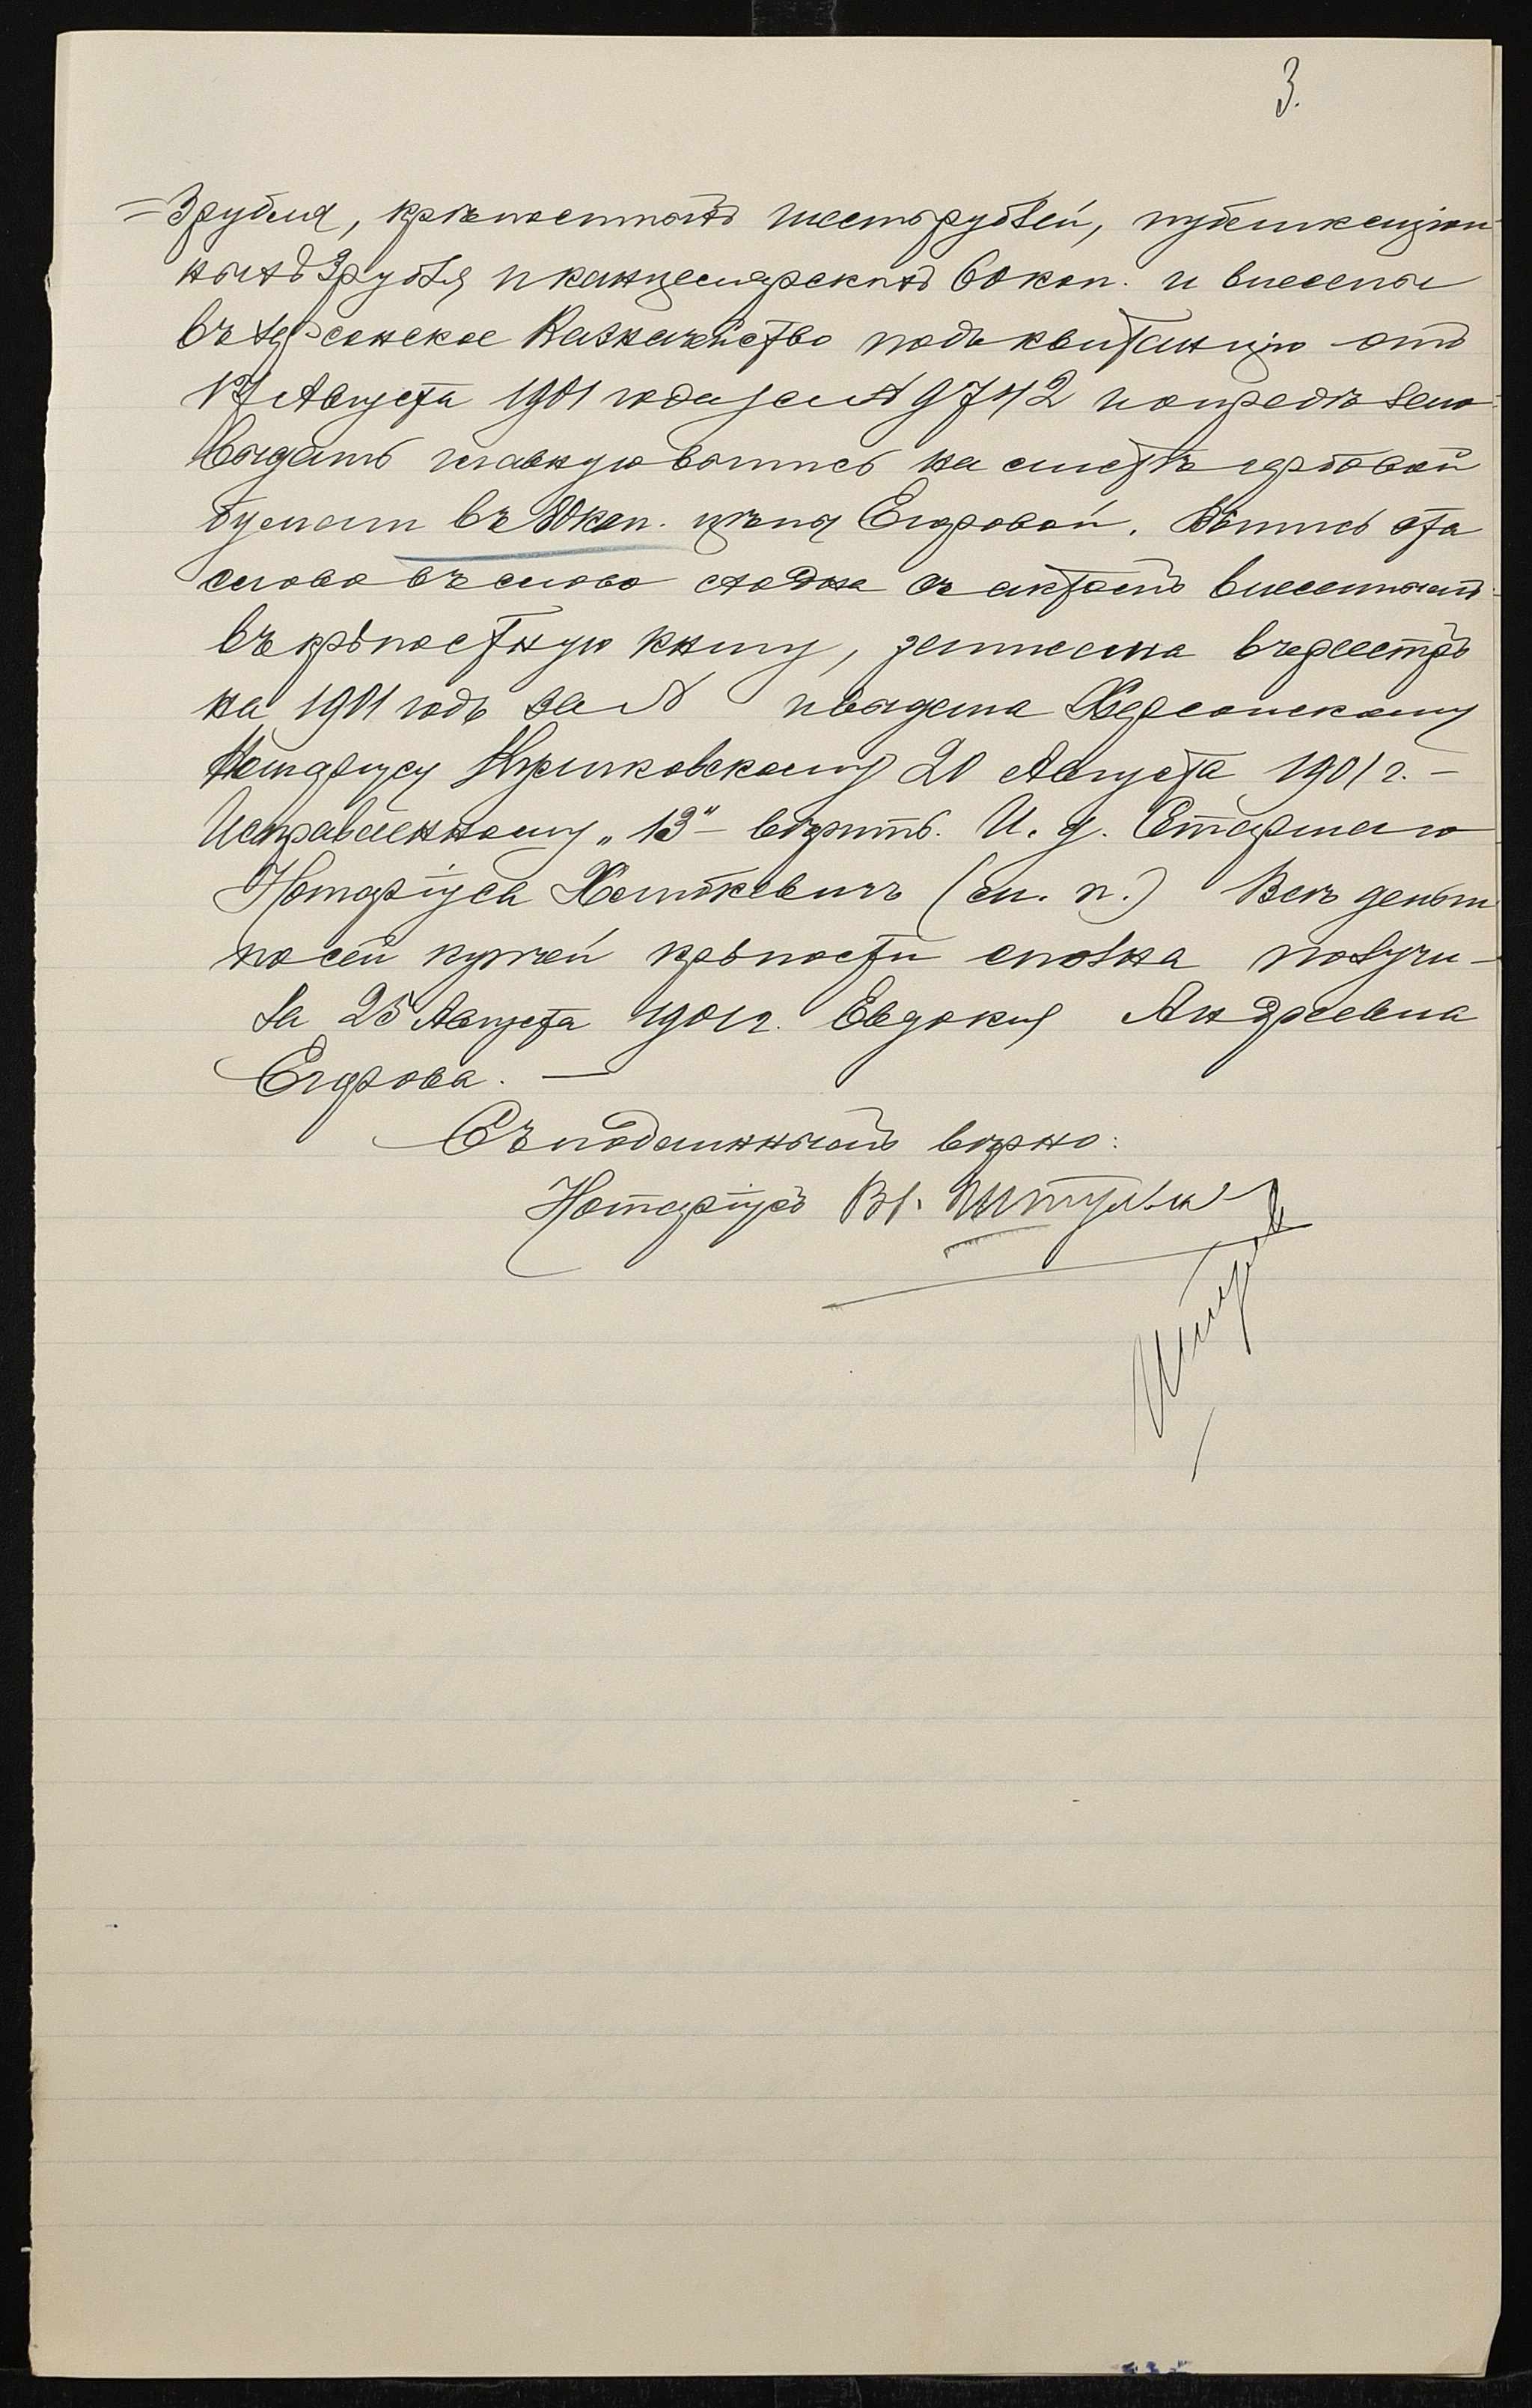 3.
= 3 рубля, крѣпостныхъ шесть рублей, публикаціон-
ныхъ 3 рубля и канцелярскихъ 60 коп. и внесены
въ Херсонское Казначейство подъ квитанцію отъ
Августа 1901 года за № 9742 и опредѣлено
выдать главную выпись на листѣ гербовой
бумаги въ 80 коп. цѣны Егоровой. Выпись эта
слово въ слово сходна съ актомъ внесеннымъ
въ крѣпостную книгу, записана въ реестръ
на 1901 годъ за № и выдана Херсонскому
Нотаріусу 20 Августа 1901 г. –
Исправленному „13" – вѣрить. И. д. Старшаго
Нотаріуса (м. п.) Всѣ деньги
по сей купчей крѣпости сполна получи-
ла 25 Августа 1901 г. Евдокія Андреевна
Егорова. —
Съ подлиннымъ вѣрно:
Нотаріусъ Вл.